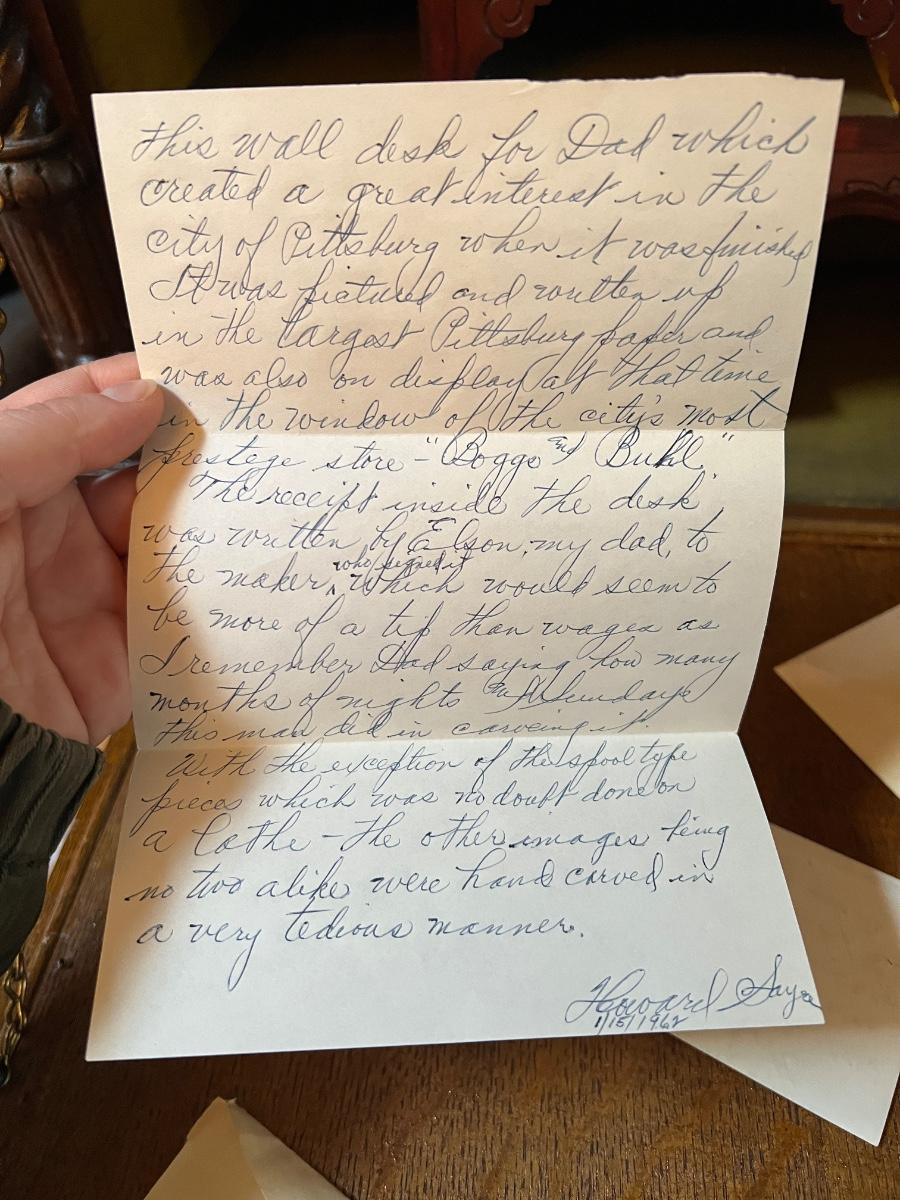 this wall desk for Dad which
created a great interest in the
city of Pittsburg when it was finished
It was pictured and written up
in the largest Pittsburg paper and
was also on display at that time
in the window of the city's most
prestege store - "Boggs and Buhl"
The receipt inside the desk
was written by Elson, my dad, to
the maker, who signed it which would seem to
be more of a tip than wages as
I remember Dad saying how many
months of nights and Sundays
this man did in carveing it.
With the exception of the spool type
pieces which was no doubt done on
a lathe - the other images being
no two alike were hand carved in
a very tedious manner.
Howard Sayre
1/15/1962